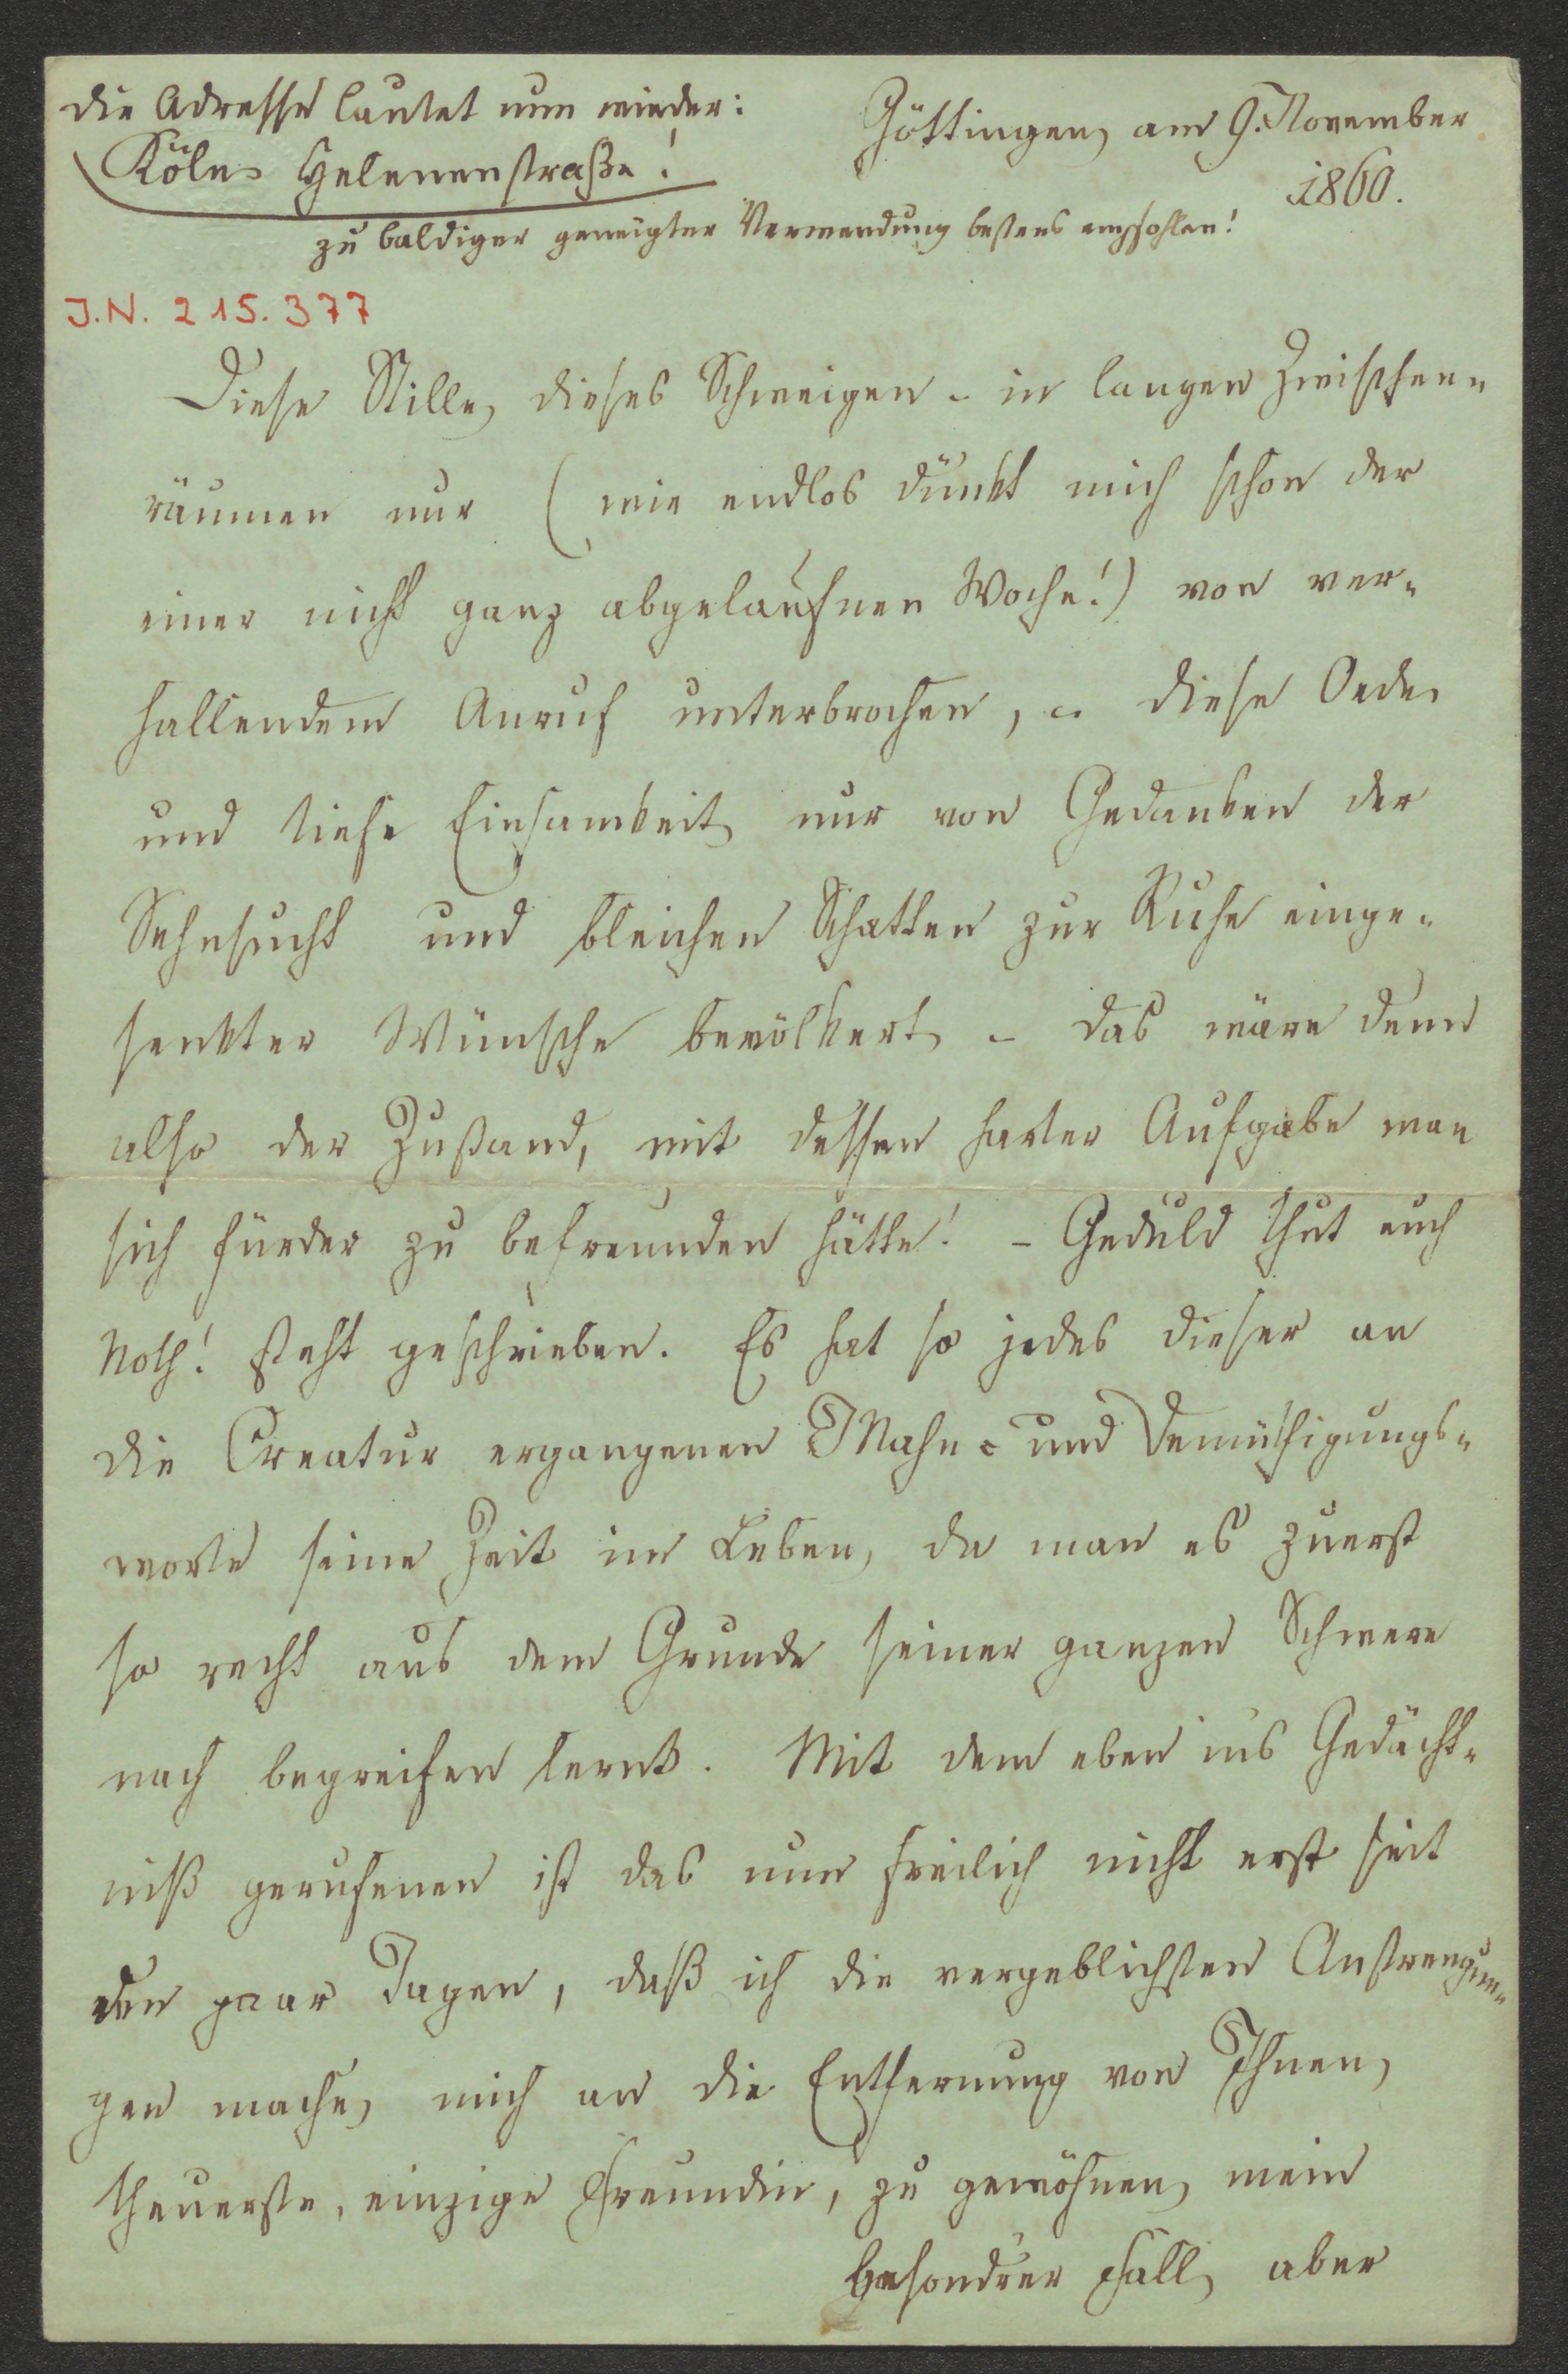 die Adresse lautet nun wieder:
Köln, Helenenstraße!
Göttingen, am 9. November
1860.
zu baldiger geneigter Verwendung bestens empfohlen!
J.N. 215.377
Diese Stille, dieses Schweigen – in langen Zwischen-
räumen nur (wie endlos dünkt mich schon der
einer nicht ganz abgelaufnen Woche!) von ver-
hallendem Anruf unterbrochen, – diese Oede
und tiefe Einsamkeit, nur von Gedanken der
Sehnsucht und bleichen Schatten zur Ruhe einge-
senkter Wünsche bevölkert, – das wäre denn
also der Zustand, mit dessen harter Aufgabe man
sich fürder zu befreunden hätte! – Geduld thut euch
Noth! steht geschrieben. Es hat so jedes dieser an
die Creatur ergangenen Mahn- und Demüthigungs-
worte seine Zeit im Leben, da man es zuerst
so recht aus dem Grunde seiner ganzen Schwere
nach begreifen lernt. Mit dem eben ins Gedächt-
niß gerufenen ist das nun freilich nicht erst seit
den paar Tagen, daß ich die vergeblichsten Anstrengun-
gen mache, mich an die Entfernung von Ihnen,
theuerste, einzige Freundin, zu gewöhnen, mein
besondrer Fall, aber